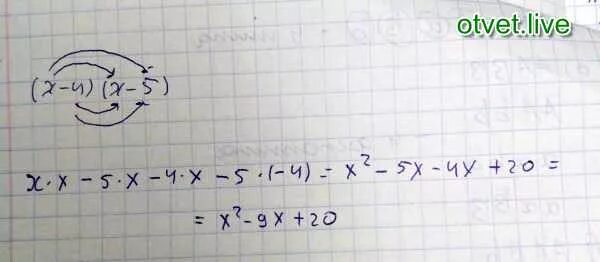 otvet.live
(x-4)(x-5)
x·x - 5·x - 4·x - 5·(-4) = x² - 5x - 4x + 20 =
= x² - 9x + 20